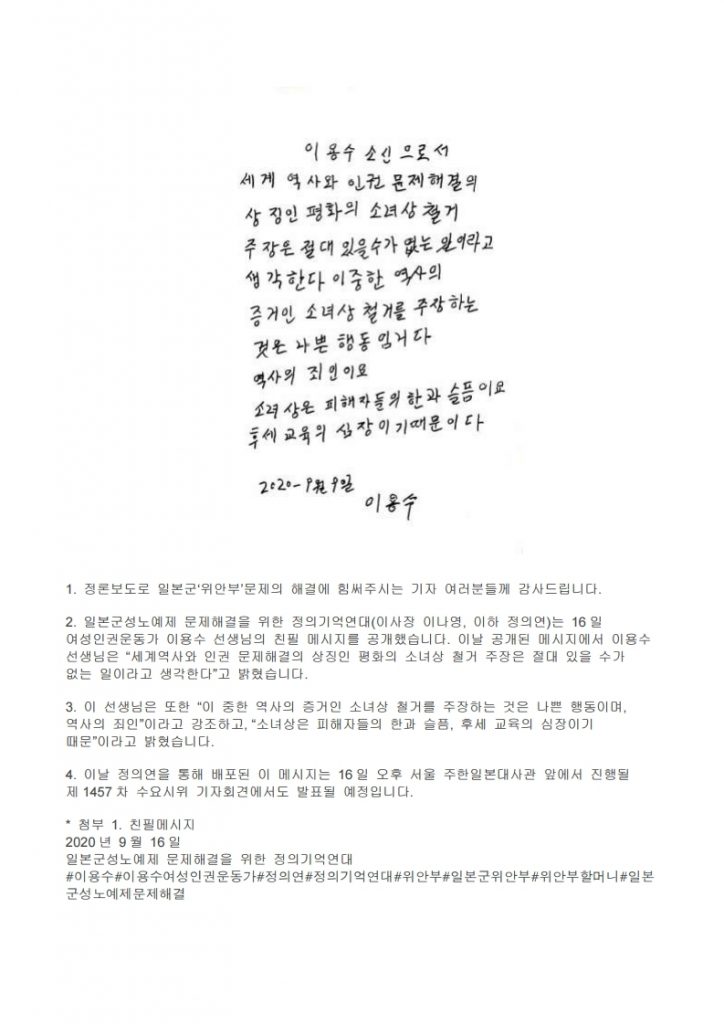 이용수 소신으로서
세계 역사와 인권 문제해결의
상징인 평화의 소녀상 철거
주장은 절대 있을수가 없는 일이라고
생각한다 이중한 역사의
증거인 소녀상 철거를 주장하는
것은 나쁜 행동입니다
역사의 죄인이요
소녀상은 피해자들의 한과 슬픔이요
후세 교육의 심장이기때문이다
2020-9월9일
이용수
1. 정론보도로 일본군‘위안부’문제의 해결에 힘써주시는 기자 여러분들께 감사드립니다.
2. 일본군성노예제 문제해결을 위한 정의기억연대(이사장 이나영, 이하 정의연)는 16일
여성인권운동가 이용수 선생님의 친필 메시지를 공개했습니다. 이날 공개된 메시지에서 이용수
선생님은 “세계역사와 인권 문제해결의 상징인 평화의 소녀상 철거 주장은 절대 있을 수가
없는 일이라고 생각한다”고 밝혔습니다.
3. 이 선생님은 또한 “이 중한 역사의 증거인 소녀상 철거를 주장하는 것은 나쁜 행동이며,
역사의 죄인”이라고 강조하고, “소녀상은 피해자들의 한과 슬픔, 후세 교육의 심장이기
때문”이라고 밝혔습니다.
4. 이날 정의연을 통해 배포된 이 메시지는 16일 오후 서울 주한일본대사관 앞에서 진행될
제1457차 수요시위 기자회견에서도 발표될 예정입니다.
* 첨부 1. 친필메시지
2020년 9월 16일
일본군성노예제 문제해결을 위한 정의기억연대
#이용수#이용수여성인권운동가#정의연#정의기억연대#위안부#일본군위안부#위안부할머니#일본
군성노예제문제해결